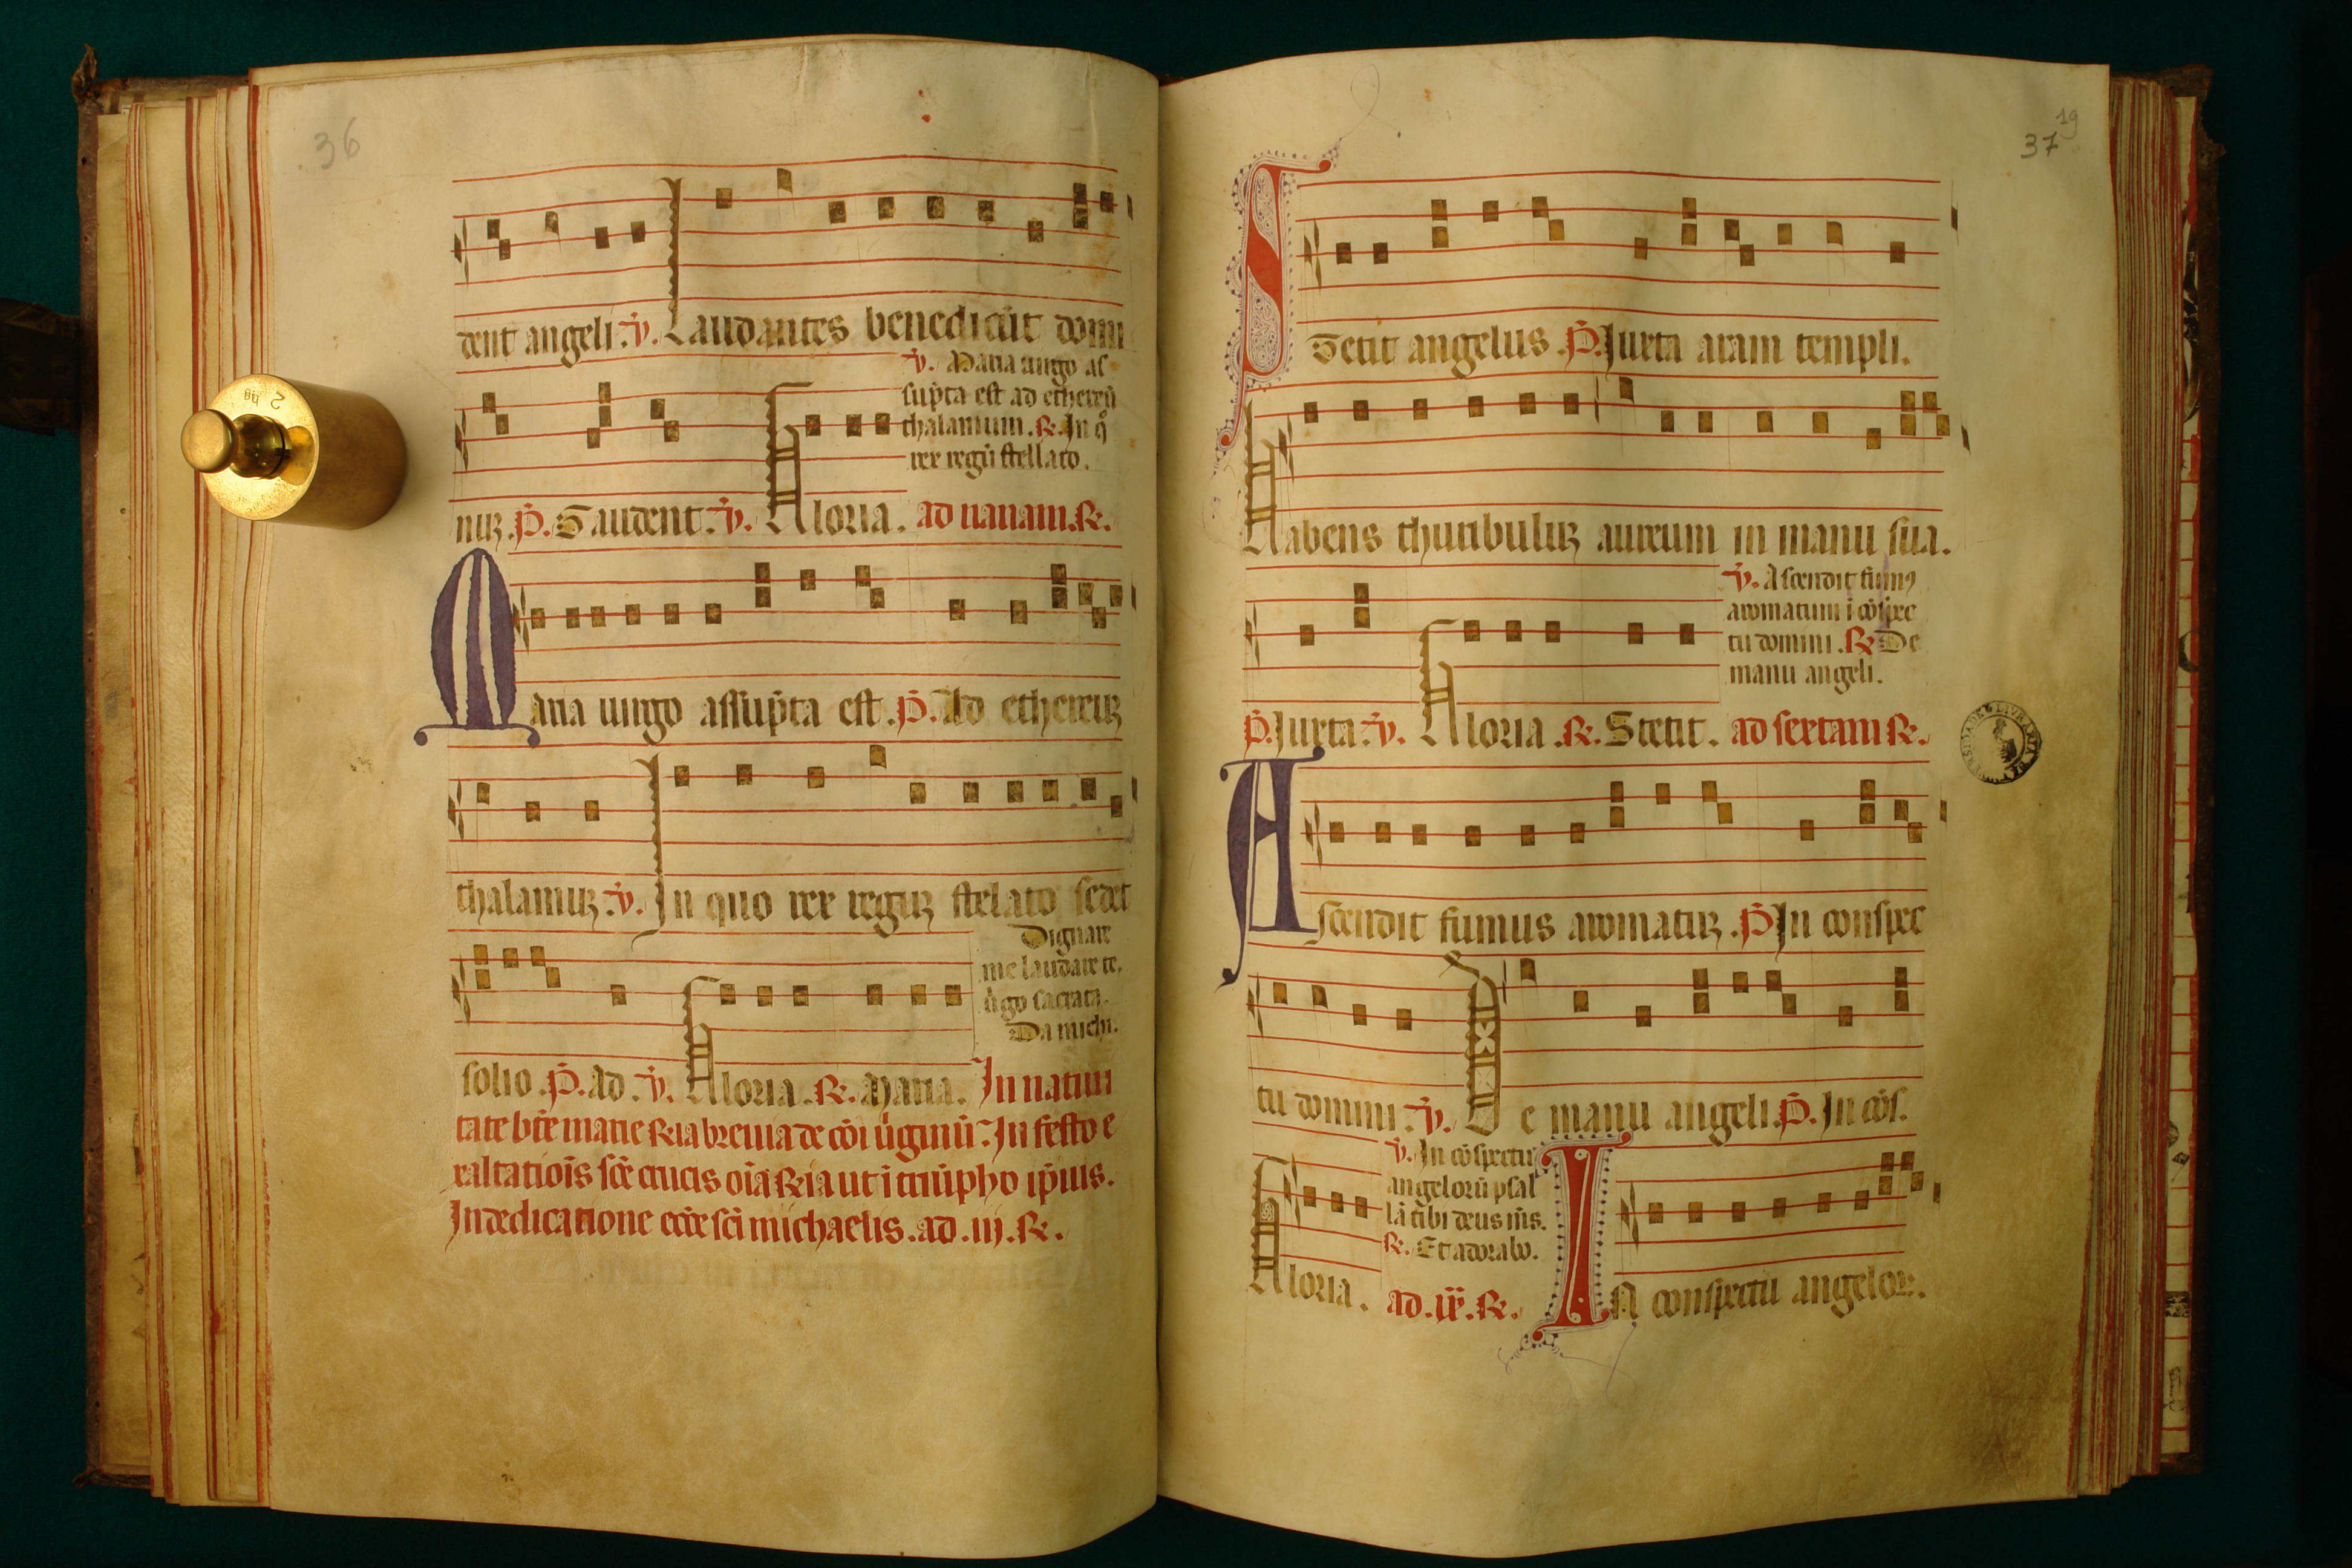 36
dent angeli. ℣. Laudantes benedicūt domi
℣. Maria uirgo as
supta est ad ethereū
thalamum. ℟. In q̊
rex regū stellato.
nuꝫ. P̄. Gaudent. ℣. Gloria. ad nanam. ℟.
Maria uirgo assupta est. P̄. Ad ethereuꝫ
thalamuꝫ. ℣. In quo rex reguꝫ stelato sedet
Dignare
me laudare te.
ũgo sacrata.
Da michi.
solio. P̄. Ad. ℣. Gloria. ℟. Maria. In natiui
tate bt̄e marie ℟ia breuia de cōi ũginū. In festo e
xaltatiōis sc̄e crucis oīa ℟ia ut ī triūpho ip̄ius.
In dedicatione ecc̄e sc̄i michaelis. ad. iij. ℟.
19
37
Stetit angelus. P̄. Iuxta aram templi.
Habens thuribuluꝫ aureum in manu sua.
℣. Ascendit fumꝰ
aromatum ī cōspec
tu domini. ℟. De
manu angeli.
P̄. Iuxta. ℣. Gloria. ℟. Stetit. ad sextam ℟.
Ascendit fumus aromatuꝫ. P̄. In conspec
tu domini. ℣. De manu angeli. P̄. In cōs.
℣. In cōspectu
angelorū psal
lā tibi deus m̄s.
℟. Et adorabo.
Gloria. ad. ix. ℟. In conspectu angeloꝝ.
2 hg